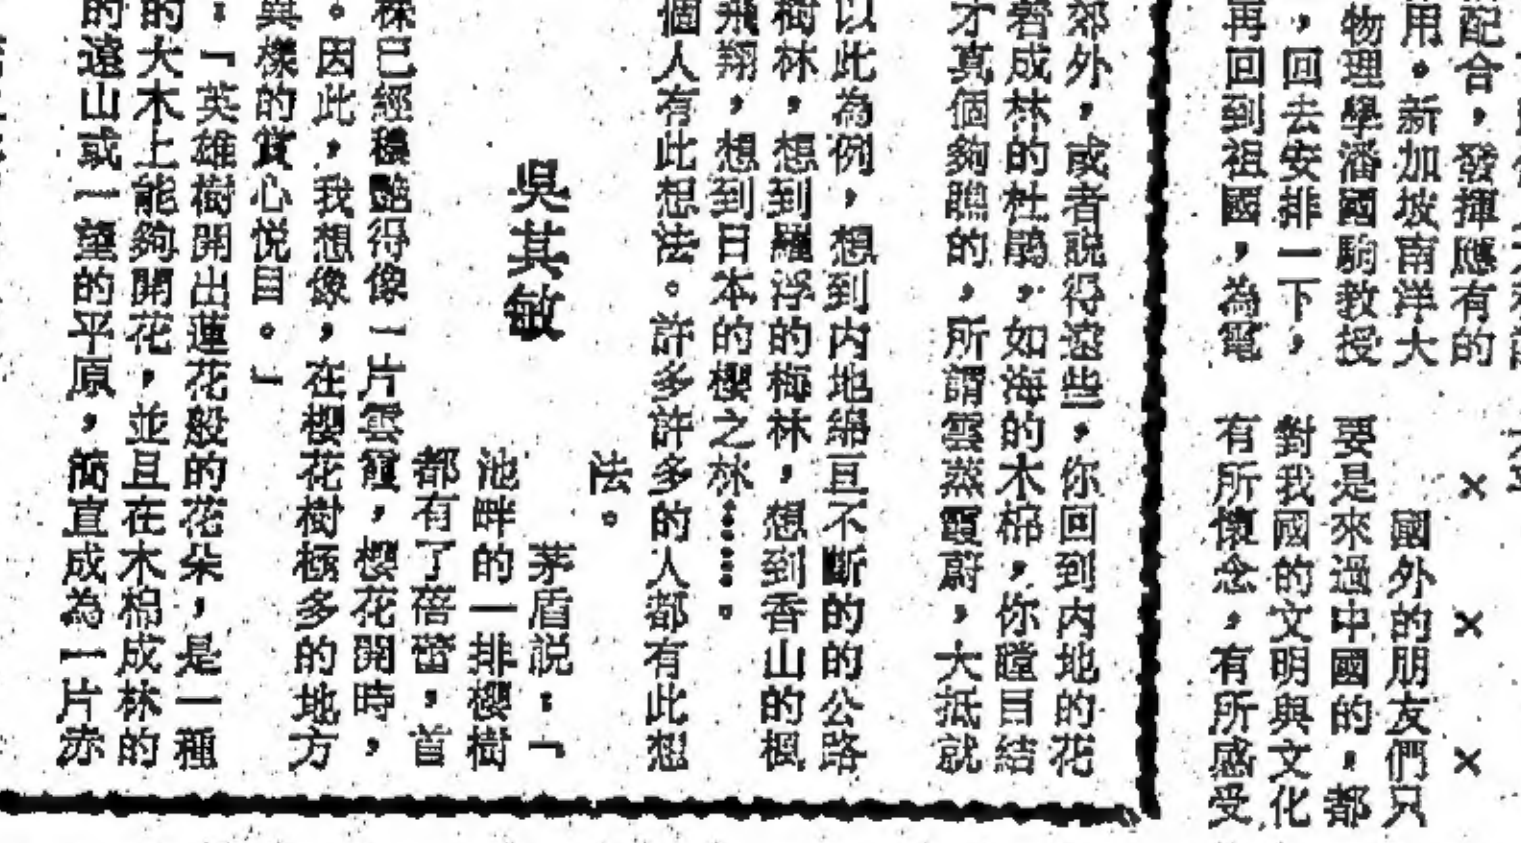 配合，發揮應有的
用。新加坡南洋大
物理學潘國駒教授
，回去安排一下，
再回到祖國，為電
×××
國外的朋友們只
要是來過中國的，都
對我國的文明與文化
有所懷念，有所感受
郊外，或者説得遠些，你回到内地的花
者成林的杜鵑，如海的木棉，你瞠目結
才真個夠瞧的，所謂雲蒸霞蔚，大抵就
以此為例，想到内地綿亘不斷的的公路
樹林，想到羅浮的梅林，想到香山的楓
飛翔，想到日本的櫻之林……。
個人有此想法。許多許多的人都有此想
法。
吳其敏
茅盾説：「
池畔的一排櫻樹
都有了蓓蕾，首
株已經穠艷得像一片雲霞，櫻花開時，
。因此，我想像，在櫻花樹極多的地方
異樣的賞心悦目。」
：「英雄樹開出蓮花般的花朵，是一種
的大木上能夠開花，並且在木棉成林的
的遠山或一望的平原，簡直成為一片赤